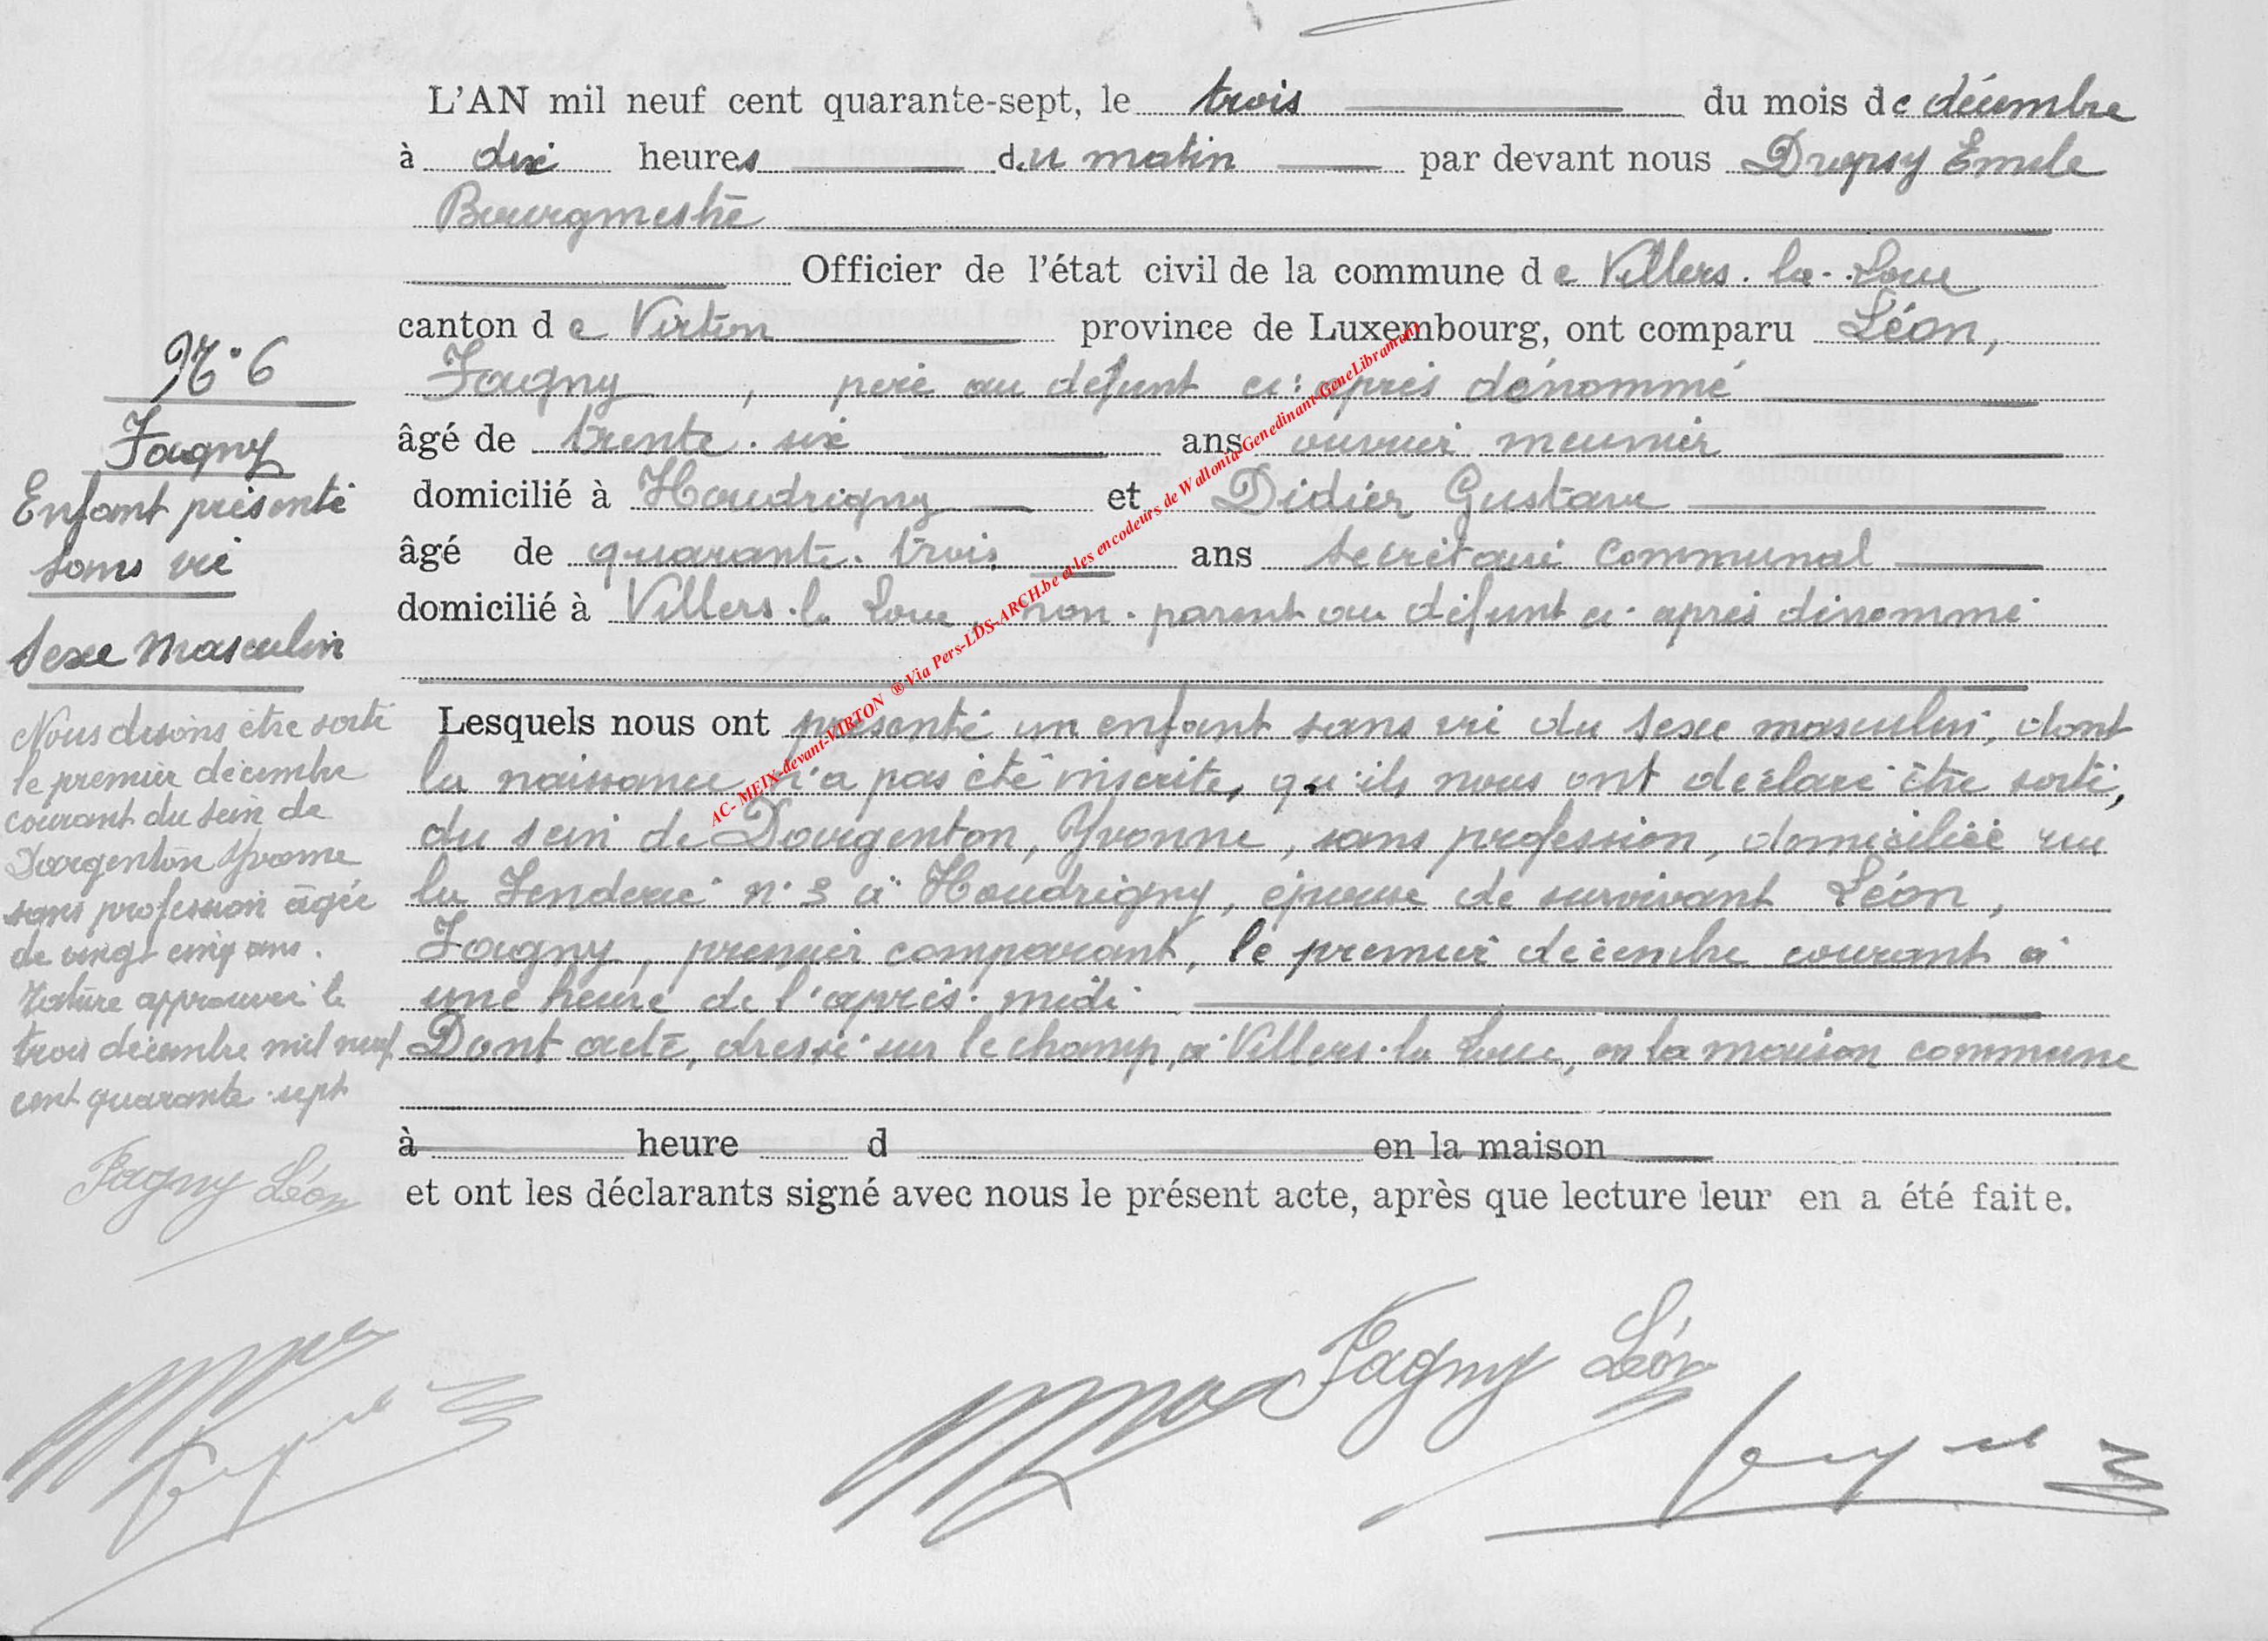 L'AN mil neuf cent quarante-sept, le trois du mois de décembre
à dix heures du matin par devant nous Dropsy Emile
Bourgmestre
Officier de l'état civil de la commune de Villers-la-Loue
canton de Virton province de Luxembourg, ont comparu Léon,
Fagny, père au défunt ci-après dénommé
âgé de trente-six ans ouvrier meunier
domicilié à Houdrigny et Didier Gustave
âgé de quarante-trois ans secrétaire communal
domicilié à Villers-la Loue, non-parent au défunt ci-après dénommé
Lesquels nous ont présenté un enfant sans vie du sexe masculin, dont
la naissance n'a pas été inscrite, qu'ils nous ont déclaré être sorti,
du sein de Dargenton, Yvonne, sans profession, domiciliée rue
la n° 3 à Houdrigny, épouse de survivant Léon,
Fagny, premier comparant, le premier décembre courant à
une heure de l'après-midi
Dont acte, dressé sur le champ, à Villers-la Loue, en la maison commune
à heure d en la maison
et ont les déclarants signé avec nous le présent acte, après que lecture leur en a été faite.
N° 6
Fagny
Enfant présenté
sans vie
Sexe Masculin
Nous disons être sorti
le premier décembre
courant du sein de
Dargenton Yvonne
sans profession âgée
de vingt cinq ans.
approuvée le
trois décembre mil neuf
cent quarante-sept
Fagny Léon
Fagny Léon
AC- MEIX-devant-VIRTON ® Via Pers-LDS-ARCH.be et les encodeurs de Wallonia-Genedinant-GeneLibramont